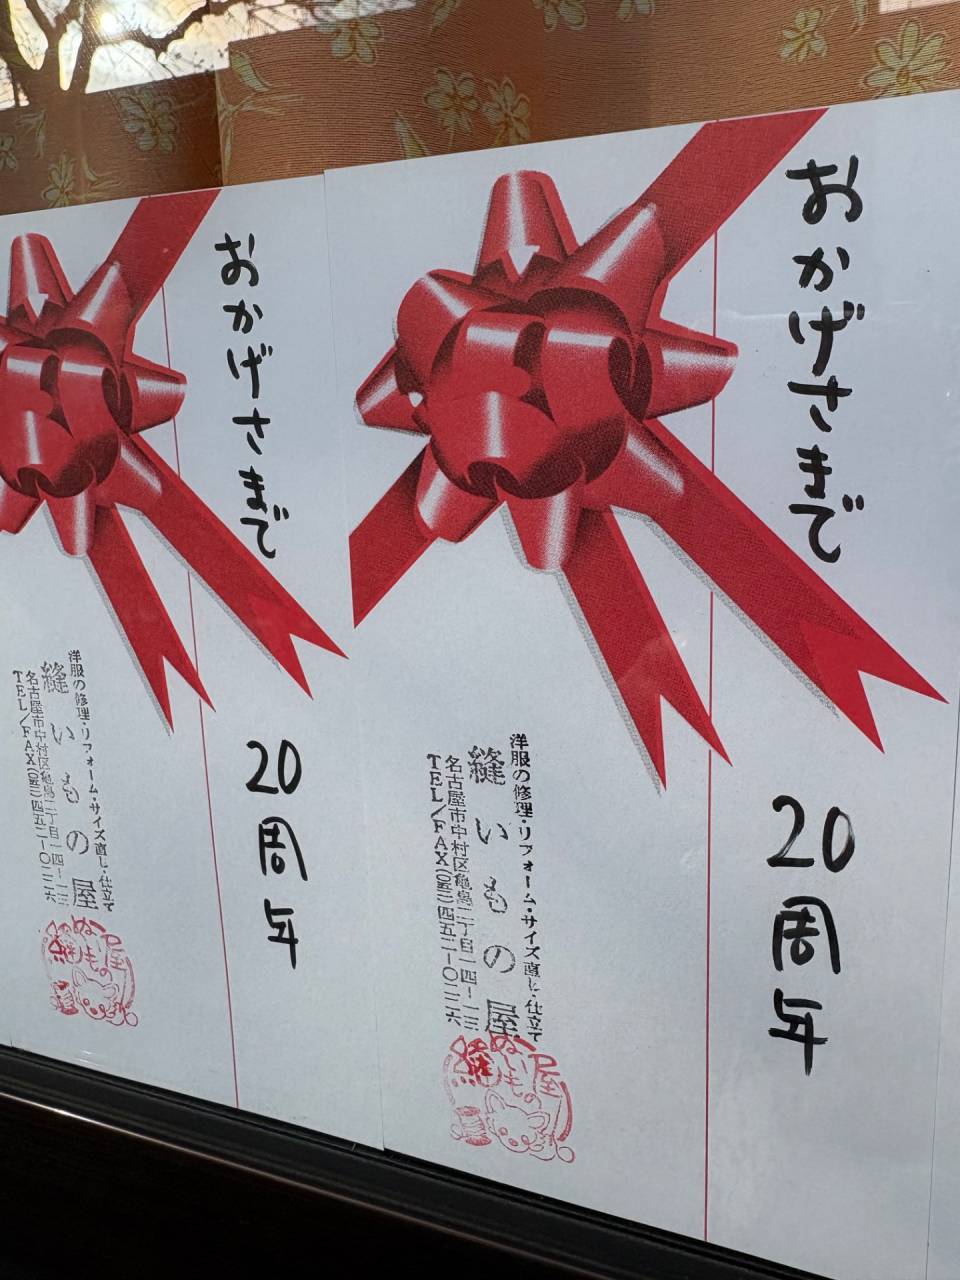 おかげさまで
20周年
洋服の修理・リフォーム・サイズ直し・仕立て
縫いもの屋
名古屋市中村区亀島二丁目一四ー一三
TEL/FAX(〇五二)四五二ー〇二二六
縫
ぬいもの屋
おかげさまで
20周年
洋服の修理・リフォーム・サイズ直し・仕立て
縫いもの屋
名古屋市中村区亀島二丁目一四ー一三
TEL/FAX(〇五二)四五二ー〇二二六
縫
ぬいもの屋